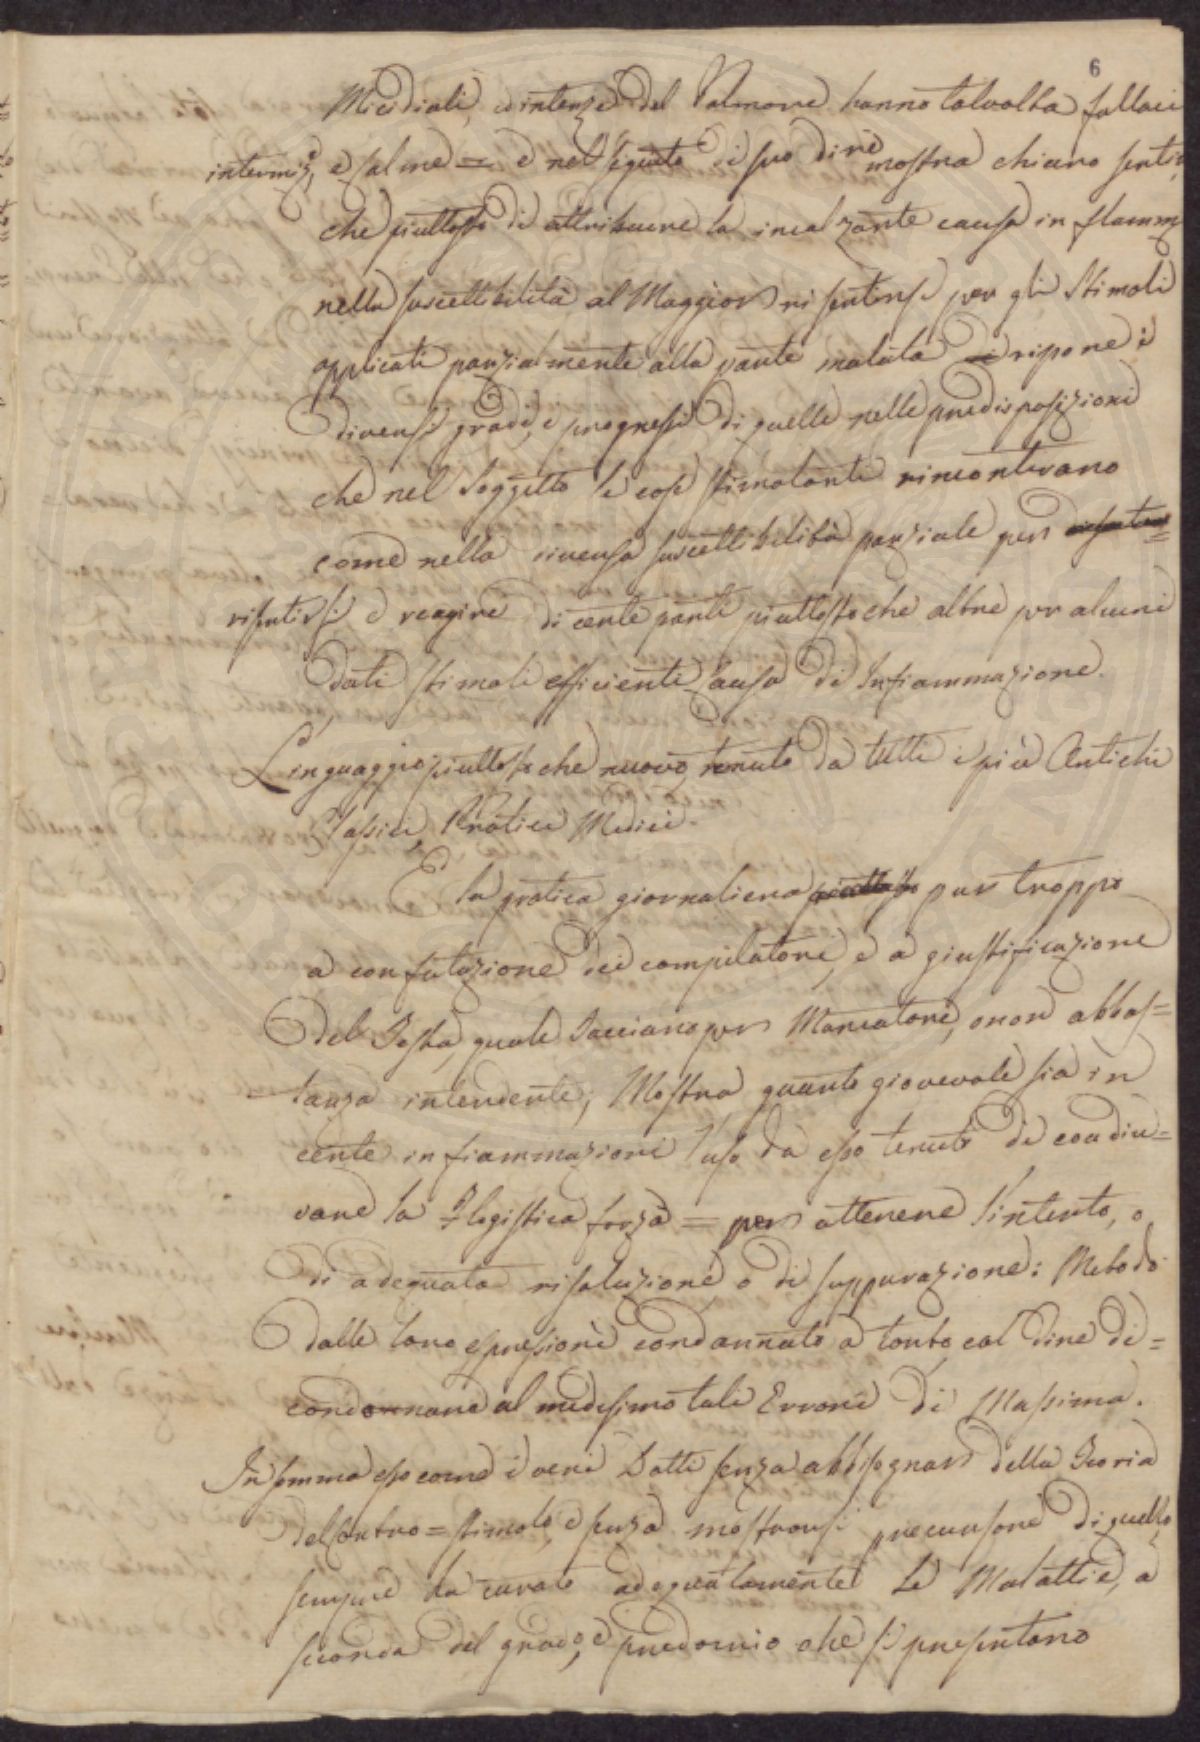 6
Micidiali, e intense del Polmone hanno talvolta fallaci
intermiss, e calme = e nel seguito di suo dire mostra chiaro sentir,
che piuttosto di attribuire la incalzante causa inflamm
nella suscettibilità al Maggior risentirsi per gli Stimoli
applicati parzialmente alla parte malata ripone i
diversi gradi, e progressi di quelle nelle predisposizioni
che nel Soggetto le cose stimolanti rincontrano
come nella diversa suscettibilità parziale per
risentirsi e reagire di certe parti piuttosto che altre per alcuni
dati stimoli efficienti causa di Infiammazione.
Linguaggio piuttosto che nuovo tenuto da tutti i più Antichi
Classici Pratici Medici.
E la pratica giornaliera piuttosto pur troppo
a confutazione dei compilatori, e a giustificazione
del Testa, quale tacciano per Mancatore, o non abbas=
tanza intendente, Mostra quanto giovevole sia in
certe infiammazioni l'uso da esso tenuto di coadiu=
vare la Flogistica forza = per ottenere l'intento, o
di adeguata risoluzione, o di suppurazione: Metodo
dalle loro espressioni condannato a torto, col dire di=
condonare al medesimo tali Errori di Massima.
In somma esso come i veri Dotti senza abbisognar della Teoria
del Contro=stimolo, e senza mostrarsi precursore di quello,
sempre ha curato adeguatamente le Malattie, a
seconda del grado, e predominio che si presentano